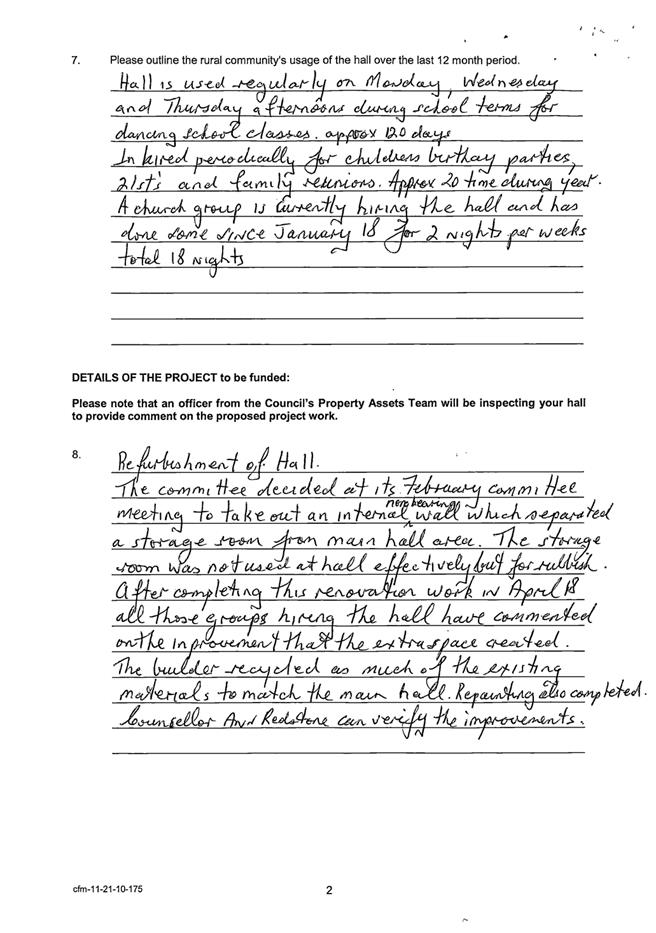 7. Please outline the rural community's usage of the hall over the last 12 month period.
Hall is used regularly on Monday, Wednesday
and Thursday afternoons during school terms for
dancing school classes. approx 120 days
In hired periodically for childrens birthay parties,
21st's and family reunions. Approx 20 time during year.
A church group is currently hiring the hall and has
done some since January 18 for 2 nights per weeks
total 18 nights
DETAILS OF THE PROJECT to be funded:
Please note that an officer from the Council's Property Assets Team will be inspecting your hall
to provide comment on the proposed project work.
8. Refurbishment of Hall.
The committee decided at its February committee
meeting to take out an internal non bearing wall which separated
a storage room from main hall area. The storage
room was not used at hall effectively but for rubbish.
After completing this renovation work in April 18
all those groups hiring the hall have commented
on the improvement that the extra space created.
The builder recycled as much of the existing
materials to match the main hall. Repainting also completed.
Counsellor Ann Redstone can verify the improvements.
cfm-11-21-10-175
2